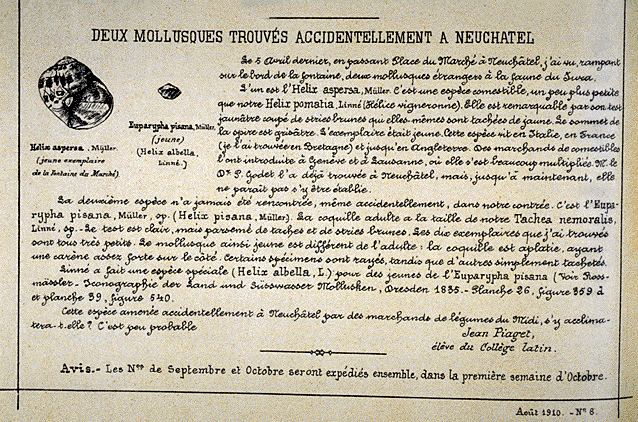 DEUX MOLLUSQUES TROUVÉS ACCIDENTELLEMENT A NEUCHATEL
Helix aspersa, Müller.
(jeune exemplaire
de la Fontaine du Marché)
Euparypha pisana, Müller,
(jeune)
(Helix albella,
Linné.)
Le 5 Avril dernier, en passant Place du Marché à Neuchâtel, j'ai vu, rampant
sur le bord de la fontaine, deux mollusques étrangers à la faune du Jura.
L'un est l'Helix aspersa, Müller. C'est une espèce comestible, un peu plus petite
que notre Helix pomatia, Linné (Hélice vigneronne). Elle est remarquable par son test
jaunâtre coupé de stries brunes qui elles-mêmes sont tachées de jaune. Le sommet de
la spire est grisâtre. L'exemplaire était jeune. Cette espèce vit en Italie, en France
(je l'ai trouvée en Bretagne) et jusqu'en Angleterre. Des marchands de comestibles
l'ont introduite à Genève et à Lausanne, où elle s'est beaucoup multipliée. M. le
Dr P. Godet l'a déjà trouvée à Neuchâtel, mais, jusqu'à maintenant, elle
ne paraît pas s'y être établie.
La deuxième espèce n'a jamais été rencontrée, même accidentellement, dans notre contrée. C'est l'Eupa-
rypha pisana, Müller, sp. (Helix pisana, Müller). La coquille adulte a la taille de notre Tachea nemoralis,
Linné, sp. - Le test est clair, mais parsemé de taches et de stries brunes. Les dix exemplaires que j'ai trouvés
sont tous très petits. Le mollusque ainsi jeune est différent de l'adulte : la coquille est aplatie, ayant
une carène assez forte sur le côté. Certains spécimens sont rayés, tandis que d'autres simplement tachetés.
Linné a fait une espèce spéciale (Helix albella, L.) pour des jeunes de l'Euparypha pisana (Voir Ross-
mässler - Iconographie der Land und Süsswasser Mollusken, Dresden 1835. - Planche 26, figure 359 à
et planche 39, figure 540.
Cette espèce amenée accidentellement à Neuchâtel par des marchands de légumes du Midi, s'y acclima-
tera-t-elle ? C'est peu probable
Jean Piaget,
élève du Collège latin.
Avis. - Les Nos de Septembre et Octobre seront expédiés ensemble, dans la première semaine d'Octobre.
Août 1910. - No 6.